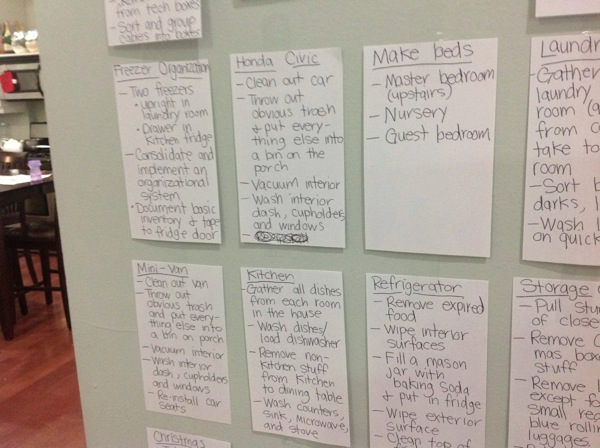 from tech boxes
- Sort and group
cables into boxes
Freezer Organization
- Two freezers
• upright in
laundry room
• Drawer in
Kitchen fridge
- Consolidate and
implement an
organizational
system
• Document basic
inventory & tape
to fridge door
Honda Civic
- Clean out car
- Throw out
obvious trash
& put every-
thing else into
a bin on the
porch
- Vacuum interior
- Wash interior
dash, cupholders
and windows
Make beds
- Master bedroom
(upstairs)
- Nursery
- Guest bedroom
Laundr
- Gather
laundry
room (a
from c
take to
room
- Sort b
darks, l
- Wash l
on quick
Mini-Van
- Clean out van
- Throw out
obvious trash
and put every-
thing else into
a bin on porch
- Vacuum interior
- Wash interior
dash, cupholders
and windows
- Re-install car
seats
Kitchen
- Gather all dishes
from each room
in the house
- Wash dishes/
load dishwasher
- Remove non-
Kitchen stuff
from Kitchen
to dining table
- Wash counters,
sink, microwave,
and stove
Refrigerator
- Remove expired
food
- Wipe interior
surfaces
- Fill a mason
jar with
baking soda
& put in fridge
- Wipe exterior
surface
- Clean top of
Storage
- Pull stu
of close
- Remove C
mas box
stuff
- Remove l
except fo
small re
blue rollin
luggages
Christmas